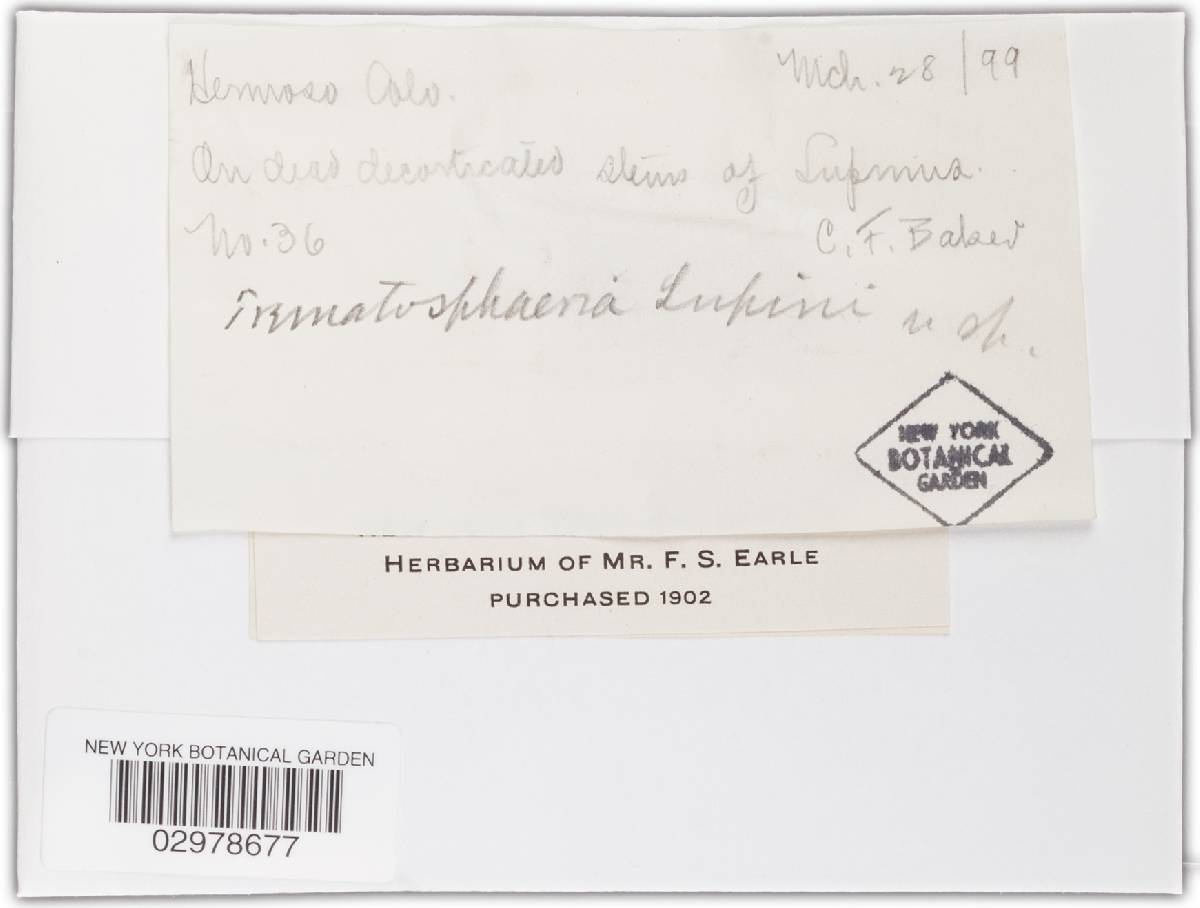 Hermosa Colo. Mch. 28/99
On dead decorticated stems of Lupinus.
No. 36 C. F. Baker
Trematosphaeria Lupini n sp.
NEW YORK
BOTANICAL
GARDEN
HERBARIUM OF MR. F. S. EARLE
PURCHASED 1902
NEW YORK BOTANICAL GARDEN
02978677